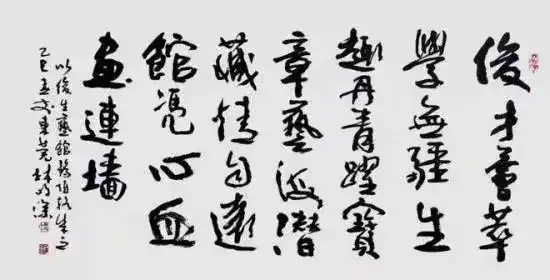 俊才薈萃
學無疆生
趣丹青躍寶
章藝海潛
藏情自遠
館憑心血
畫連墻
以俊生藝館
乙巳孟 東莞林